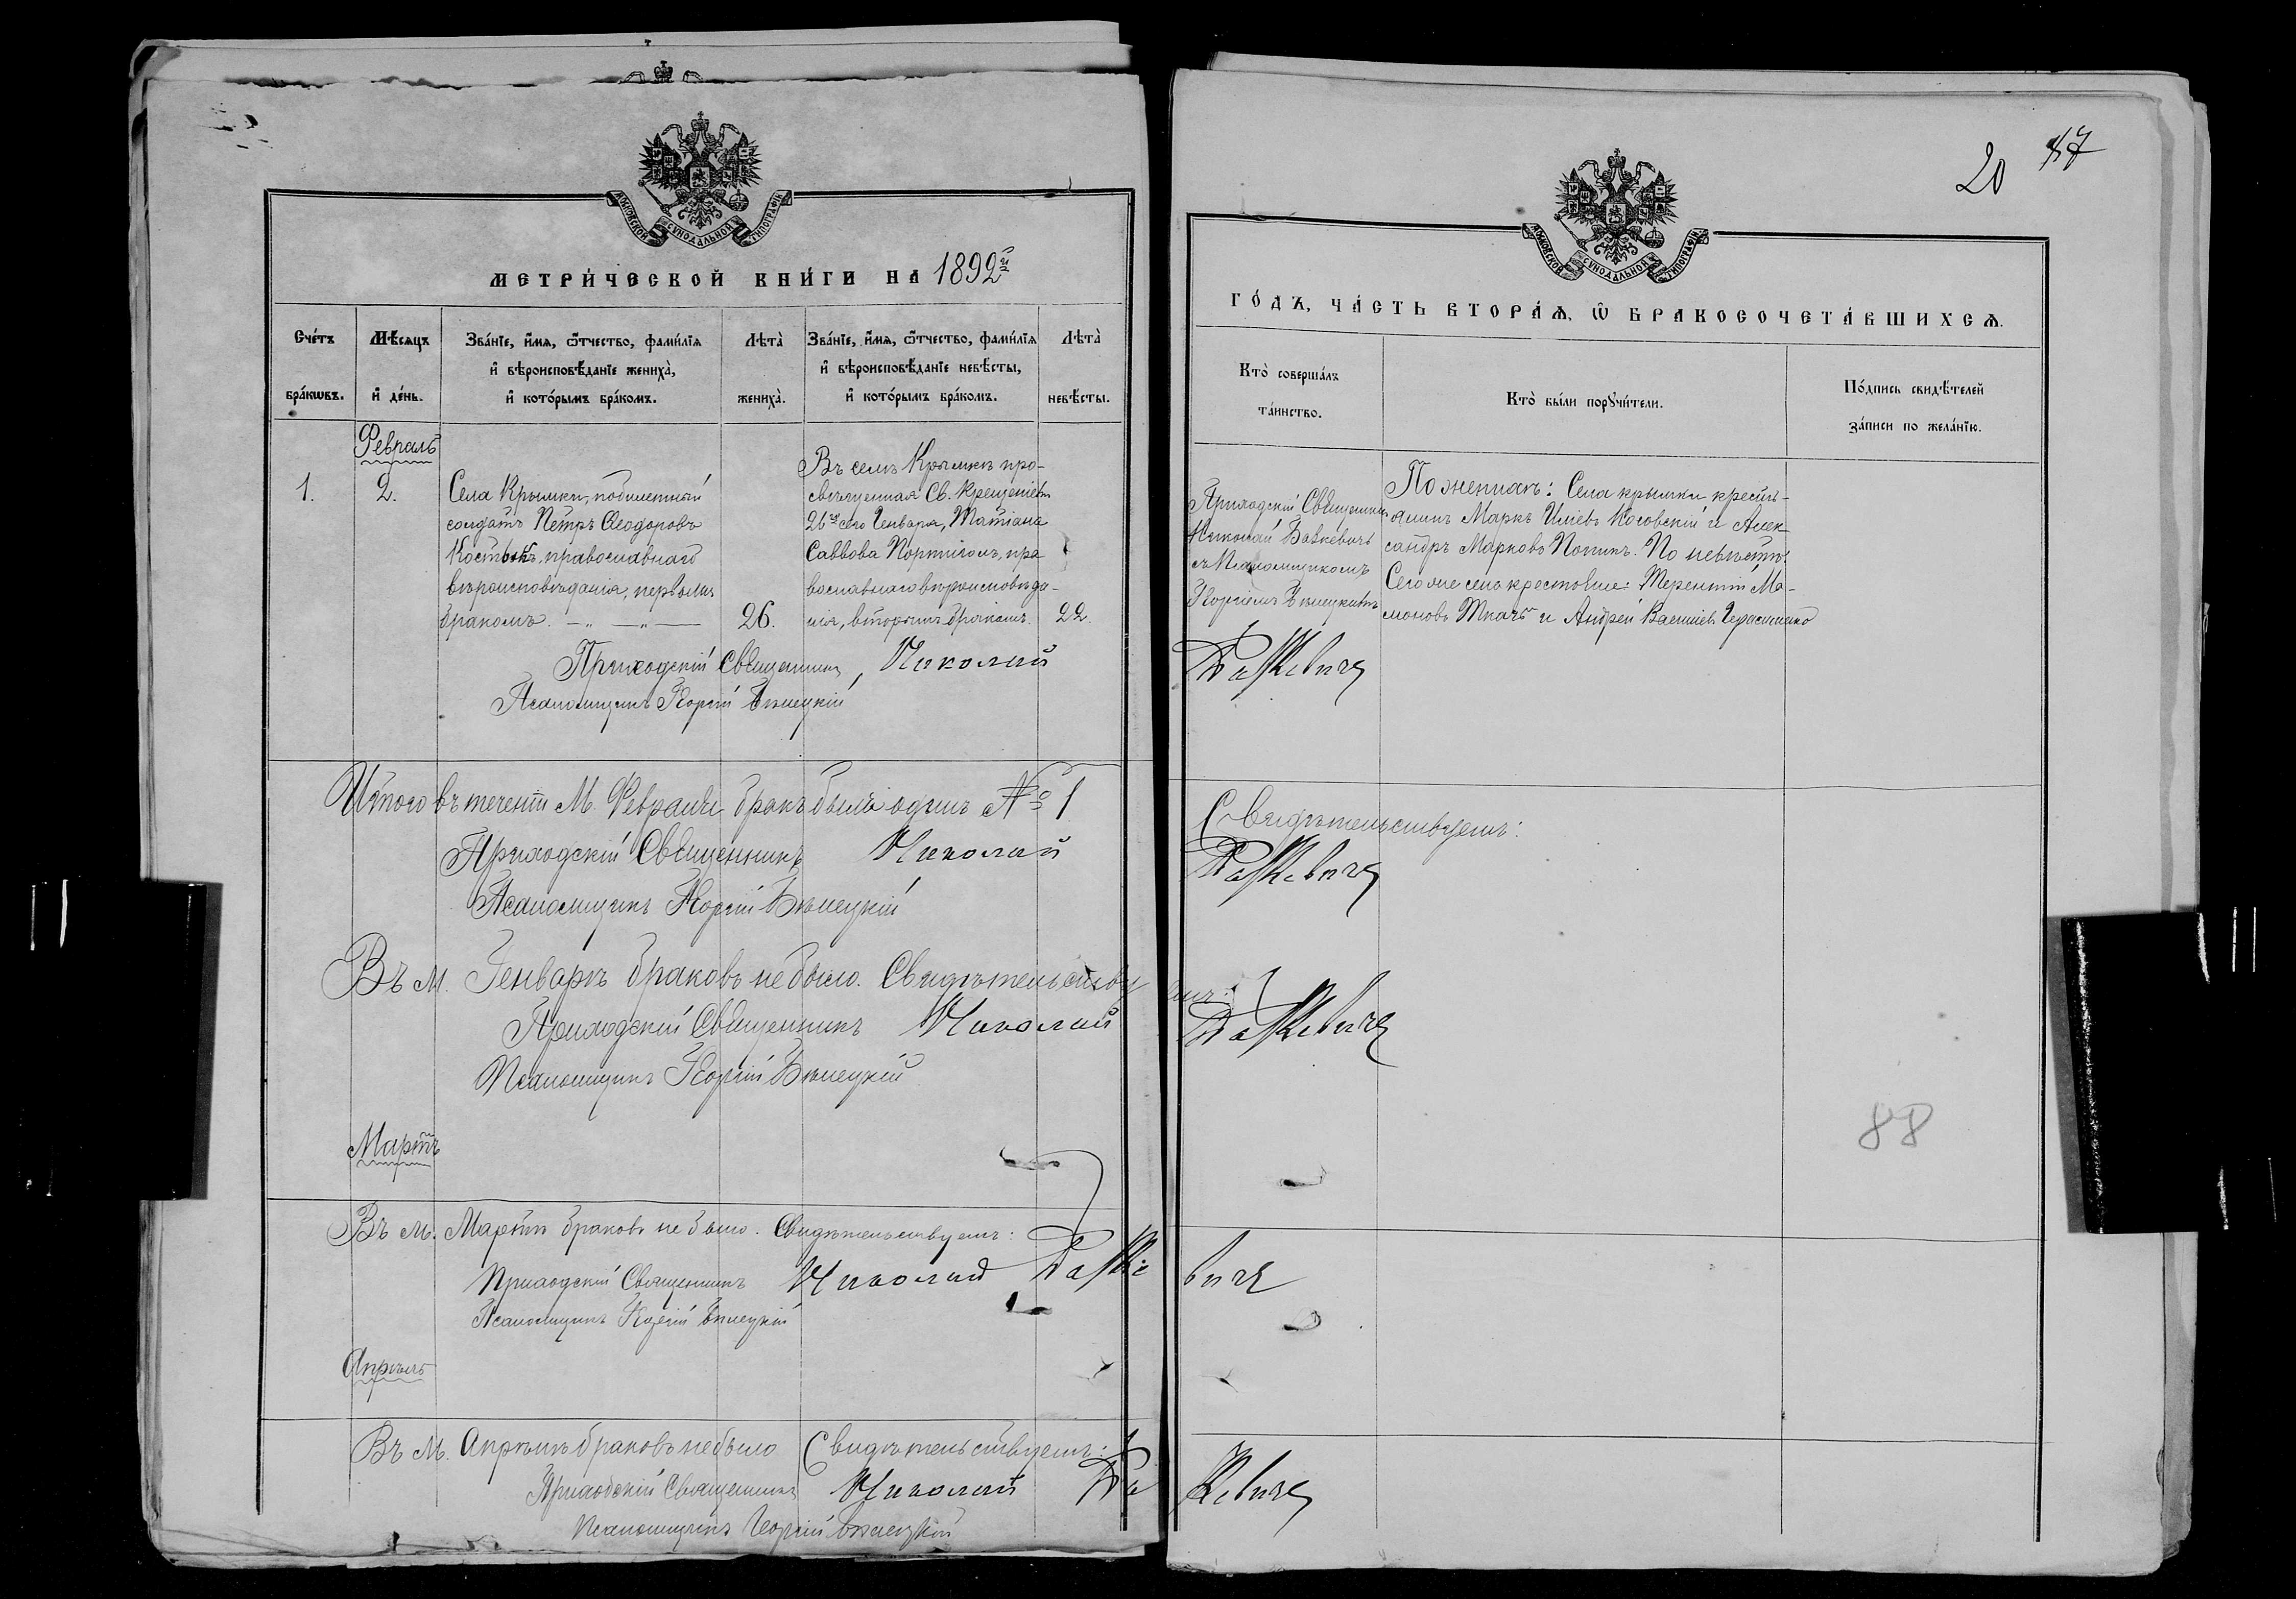 МОСКОВСКОЙ СѴНОДАЛЬНОЙ ТИПОГРАФІИ
МЕТРИ́ЧЕСКОЙ КНИ́ГИ НА 1892й
Сче́тъ бра́кѡвъ.
Мѣ́сяцъ и҆ де́нь.
Зва́нїе, и҆́мѧ, ѻ҆́тчество, фами́лїѧ
и҆ вѣроисповѣ́данїе жениха̀,
и҆ кото́рымъ бра́комъ.
Лѣта̀ жениха̀.
Зва́нїе, и҆́мѧ, ѻ҆́тчество, фами́лїѧ
и҆ вѣроисповѣ́данїе невѣ́сты,
и҆ кото́рымъ бра́комъ.
Лѣта̀ невѣ́сты.
Февраль
1.
2.
Села Крымки, побилетный
солдатъ Петръ Ѳеодоровъ
православнаго
вѣроисповѣданія, первымъ
бракомъ. — „ — „ —
26.
Въ селѣ Крымкѣ про-
свѣщенная Св. Крещеніемъ
26го сего Генваря, Татіана
Саввова пра
вославнаго вѣроисповѣда-
нія, вторымъ бракомъ.
22.
Приходскій Священникъ, Николай
Псаломщикъ Георгій Бѣлецкій
Итого въ теченіи М. Февраля бракъ былъ одинъ № 1
Приходскій Священникъ Николай
Псаломщикъ Георгій Бѣлецкій
Въ М. Генварѣ браковъ не было. Свидѣтельству
Приходскій Священникъ Николай
Псаломщикъ Георгій Бѣлецкій
Мартъ
Въ М. Мартѣ браковъ не было. Свидѣтельствуемъ:
Приходскій Священникъ Николай
Псаломщикъ Георгій Бѣлецкій
Апрѣль
Въ М. Апрѣлѣ браковъ не было Свидѣтельствуемъ:
Приходскій Священникъ Николай
Псаломщикъ Георгій Бѣлецкій
20
МОСКОВСКОЙ СѴНОДАЛЬНОЙ ТИПОГРАФІИ
ГО́ДЪ, ЧА́СТЬ ВТОРА́Ѧ, Ѡ҆ БРАКОСОЧЕТА́ВШИХСѦ.
Кто̀ соверша́лъ
та́инство.
Кто̀ бы́ли порꙋчи́тели.
По́дпись свидѣ́телей
за́писи по жела́нїю.
Приходскій Священникъ
Николай
съ Псаломщикомъ
Георгіемъ Бѣлецкимъ
По женихѣ: Села Крымки крестья-
янинъ Маркъ и Алек-
сандръ Марковъ По невѣстѣ:
Сего же села крестьяне: Терентій Ма-
моновъ Ткачъ и Андрей
Свидѣтельствуемъ:
емъ:
88